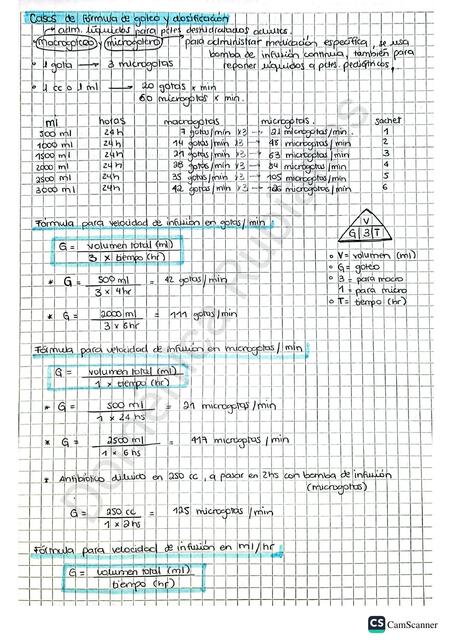 Casos de fórmula de goteo y dosificación
adm. líquidos para pctes deshidratados adultos.
macrogoteo y microgotero → para administrar medicación específica, se usa
bomba de infusión continua, también para
reponer líquidos a pctes. pediátricos,
• 1 gota → 3 microgotas
• 1 cc o 1 ml → 20 gotas x min
60 microgotas x min.
ml horas macrogotas microgotas. sachet
500 ml 24h 7 gotas/min x3 → 21 microgotas/min. 1
1000 ml 24h 14 gotas/min x3 → 48 microgotas/min. 2
1500 ml 24h 21 gotas/min x3 → 63 microgotas/min 3
2000 ml 24h 28 gotas/min x3 → 84 microgotas/min 4
2500 ml 24h 35 gotas/min x3 → 105 microgotas/min 5
3000 ml 24h 42 gotas/min x3 → 126 microgotas/min 6
Fórmula para velocidad de infusión en gotas/min
G = volumen total (ml)
3 x tiempo (hr)
V
G 3 T
• V = volumen (ml)
• G = goteo
• 3 = para macro
1 = para micro
• T = tiempo (hr)
* G = 500 ml = 42 gotas/min
3 x 4hr
* G = 2000 ml = 111 gotas/min
3 x 6hr
Fórmula para velocidad de infusión en microgotas/min
G = volumen total (ml)
1 x tiempo (hr)
* G = 500 ml = 21 microgotas/min
1 x 24 hs
* G = 2500 ml = 417 microgotas/min
1 x 6 hs
* Antibiótico diluido en 250 cc, a pasar en 2hs con bomba de infusión
(microgotas)
G = 250 cc = 125 microgotas/min
1 x 2hs
Fórmula para velocidad de infusión en ml/hr
G = volumen total (ml)
tiempo (hr)
CS CamScanner